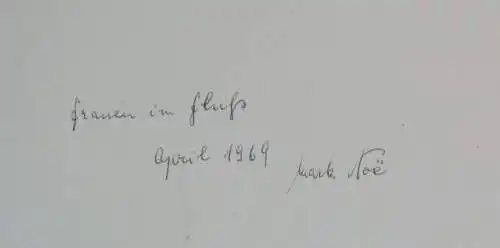 Frauen im Fluß
April 1969
Mark Noë